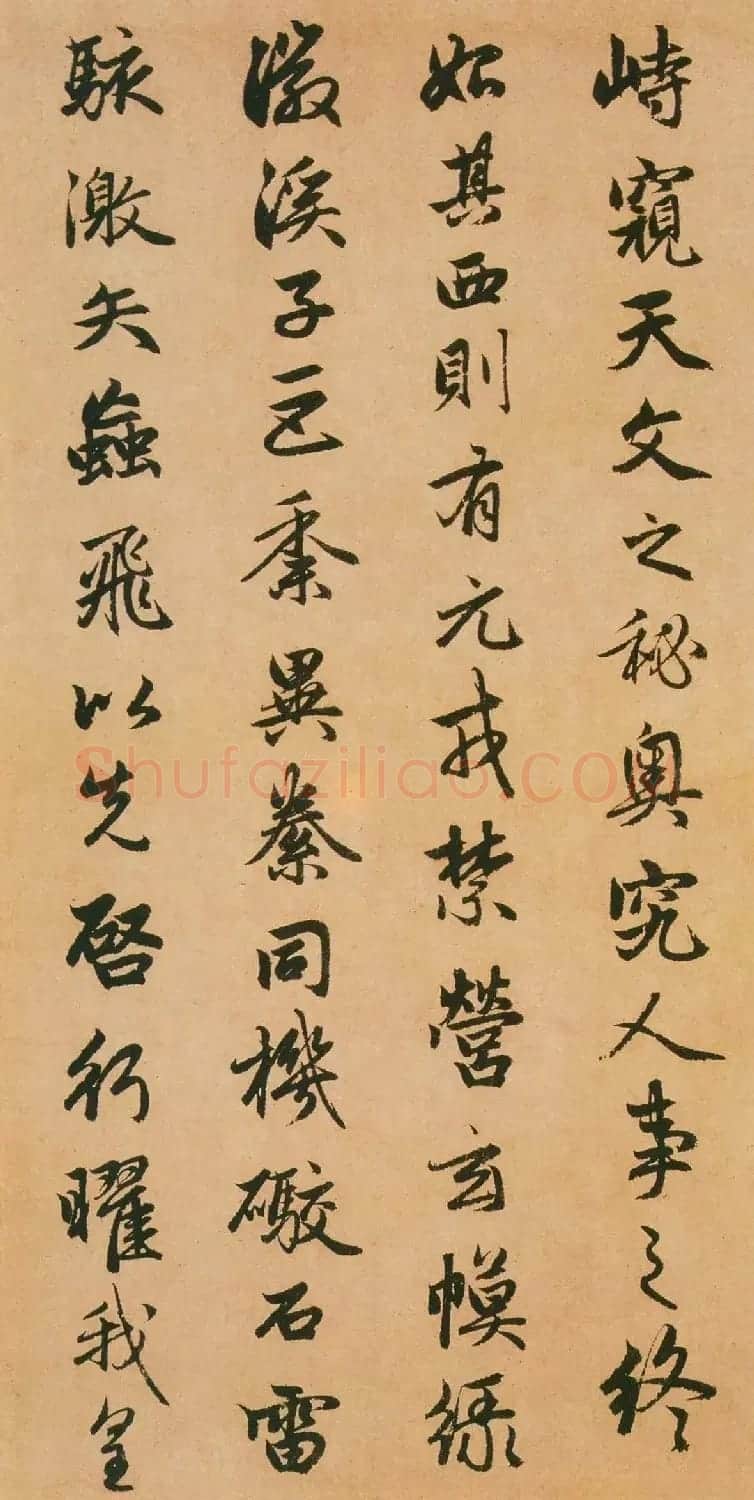 峙窺天文之秘奧究人事之終
始其西則有元戎禁營玄幙緑
徽溪子巨黍異絭同機礮石雷
駭激矢蝱飛以先啓行曜我皇
Shufaziliao.com